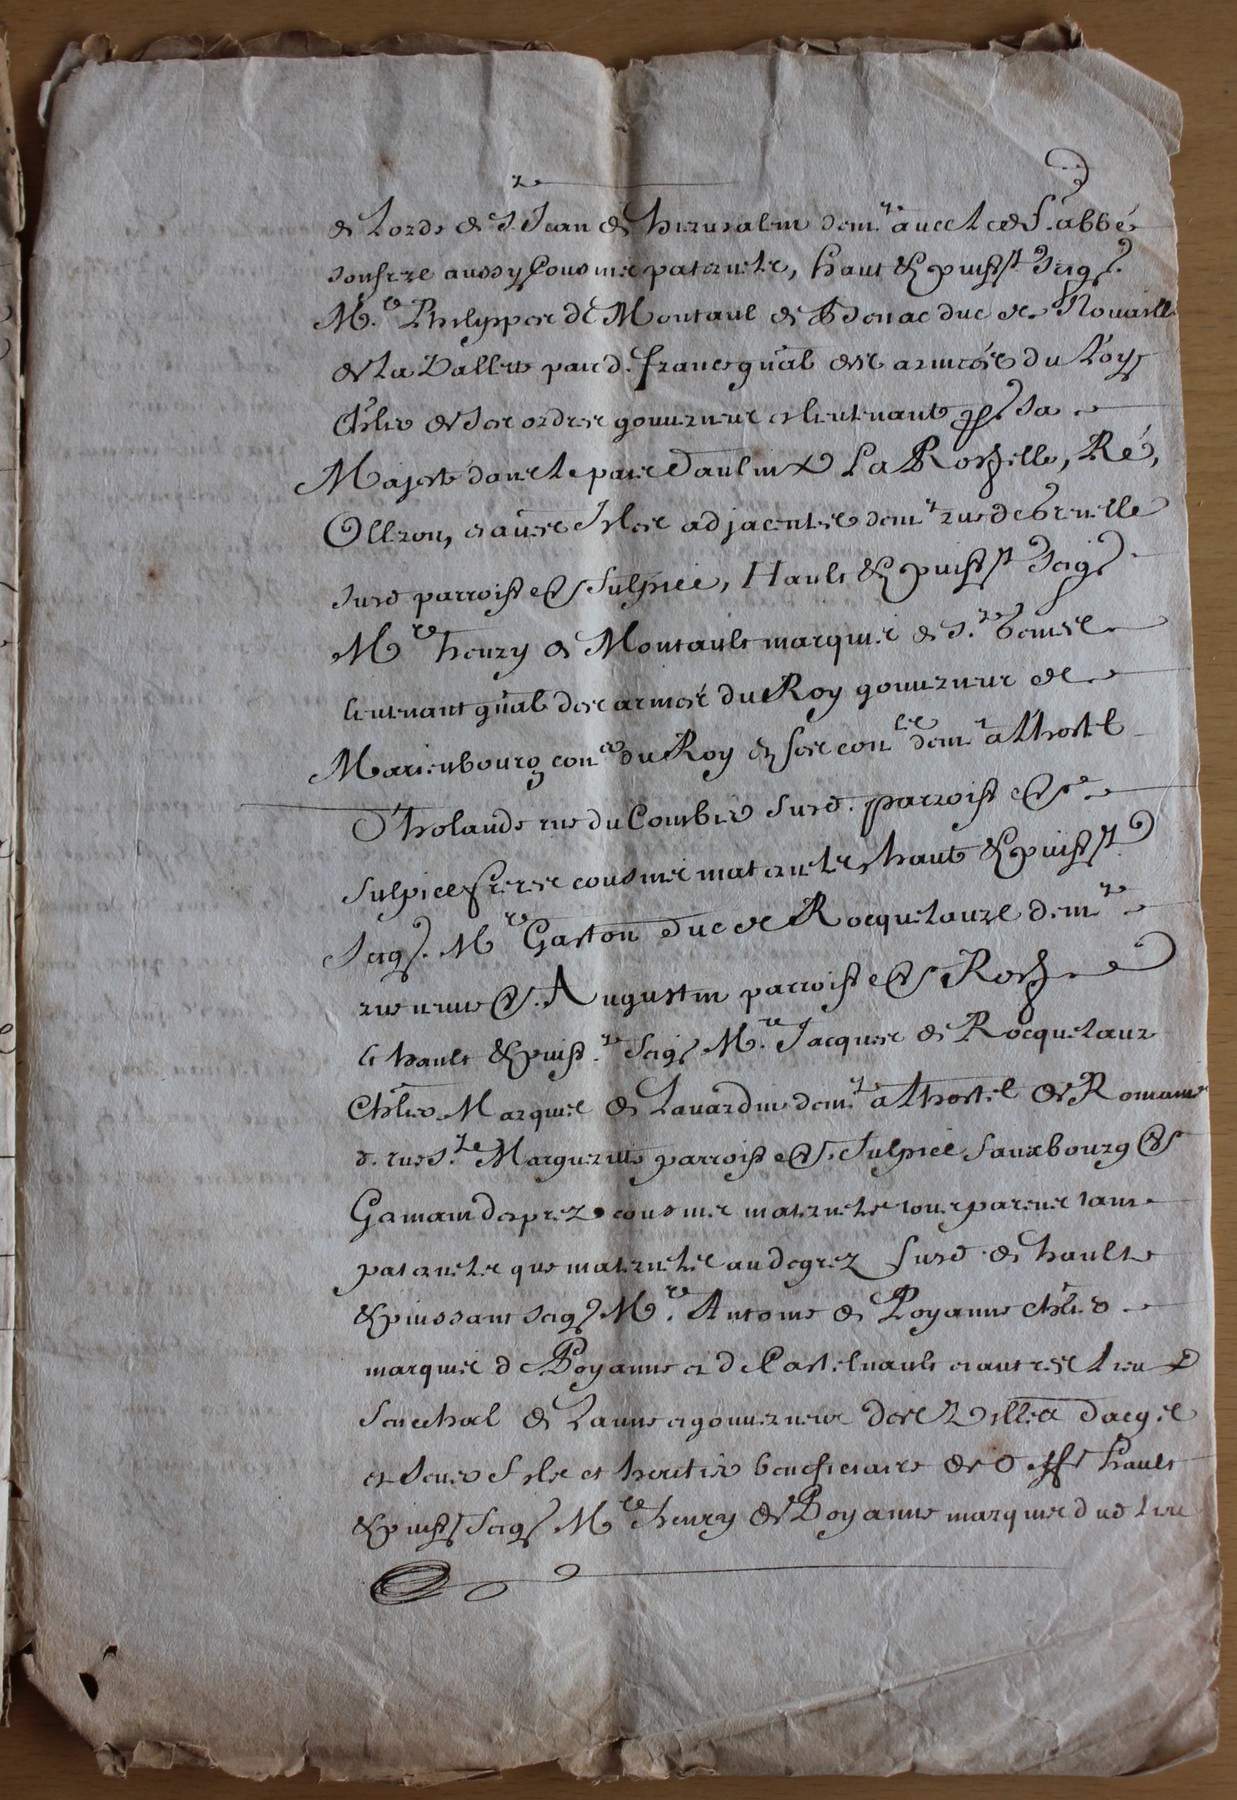 de Lordre de St. Jean de hierusalem demt. avec led. S. abbé
son frere aussy cousins paternels, haut & puisst. Seigr.
Mre. Philippes de Montault de Benac duc de Nouaille
de La Vallette pair d. france gnāl des armées du Roy
chlier de ses ordres gouverneur et lieutenant pr sa
Majesté dans le pais daulnix La Rochelle, Ré,
Olleron, et autres Isles adjacentes demt. rue de Grenelle
susd. parroisse St Sulpice, Hault & puisst. Seigr
Mre henry de Montault marquis de St. Geniest
lieutenant gnāl des armées du Roy gouverneur de
Marienbourg conser. du Roy en ses conls. demt. a lhostel
d'holande rue du Coulombier susd. parroisse de St
Sulpice freres cousins maternels haut & puisst.
Seigr. Mre Gaston duc de Rocquelaure demt.
rue neufve St. Augustin parroisse St Roch
le hault & puisst. Seigr Mre. Jacques de Rocquelaure
chlier Marquis de Lavardin demt. a lhostel de Romans
d. rue Ste. Marguerite parroisse St. Sulpice fauxbourg St
Germain desprez cousins maternels tous parens tant
paternels que maternels au degrez susd. de hault
& puissant seigr Mre. Antoine de Poyanne chlier
marquis de Poyanne et de Castelnault et autres lieux
Seneschal de Lanne et gouverneur des Villes dacqs
et Sever fils et heritier beneficiaire de defft hault
& puisst Seigr Mre henry de Poyanne marquis dud. lieu